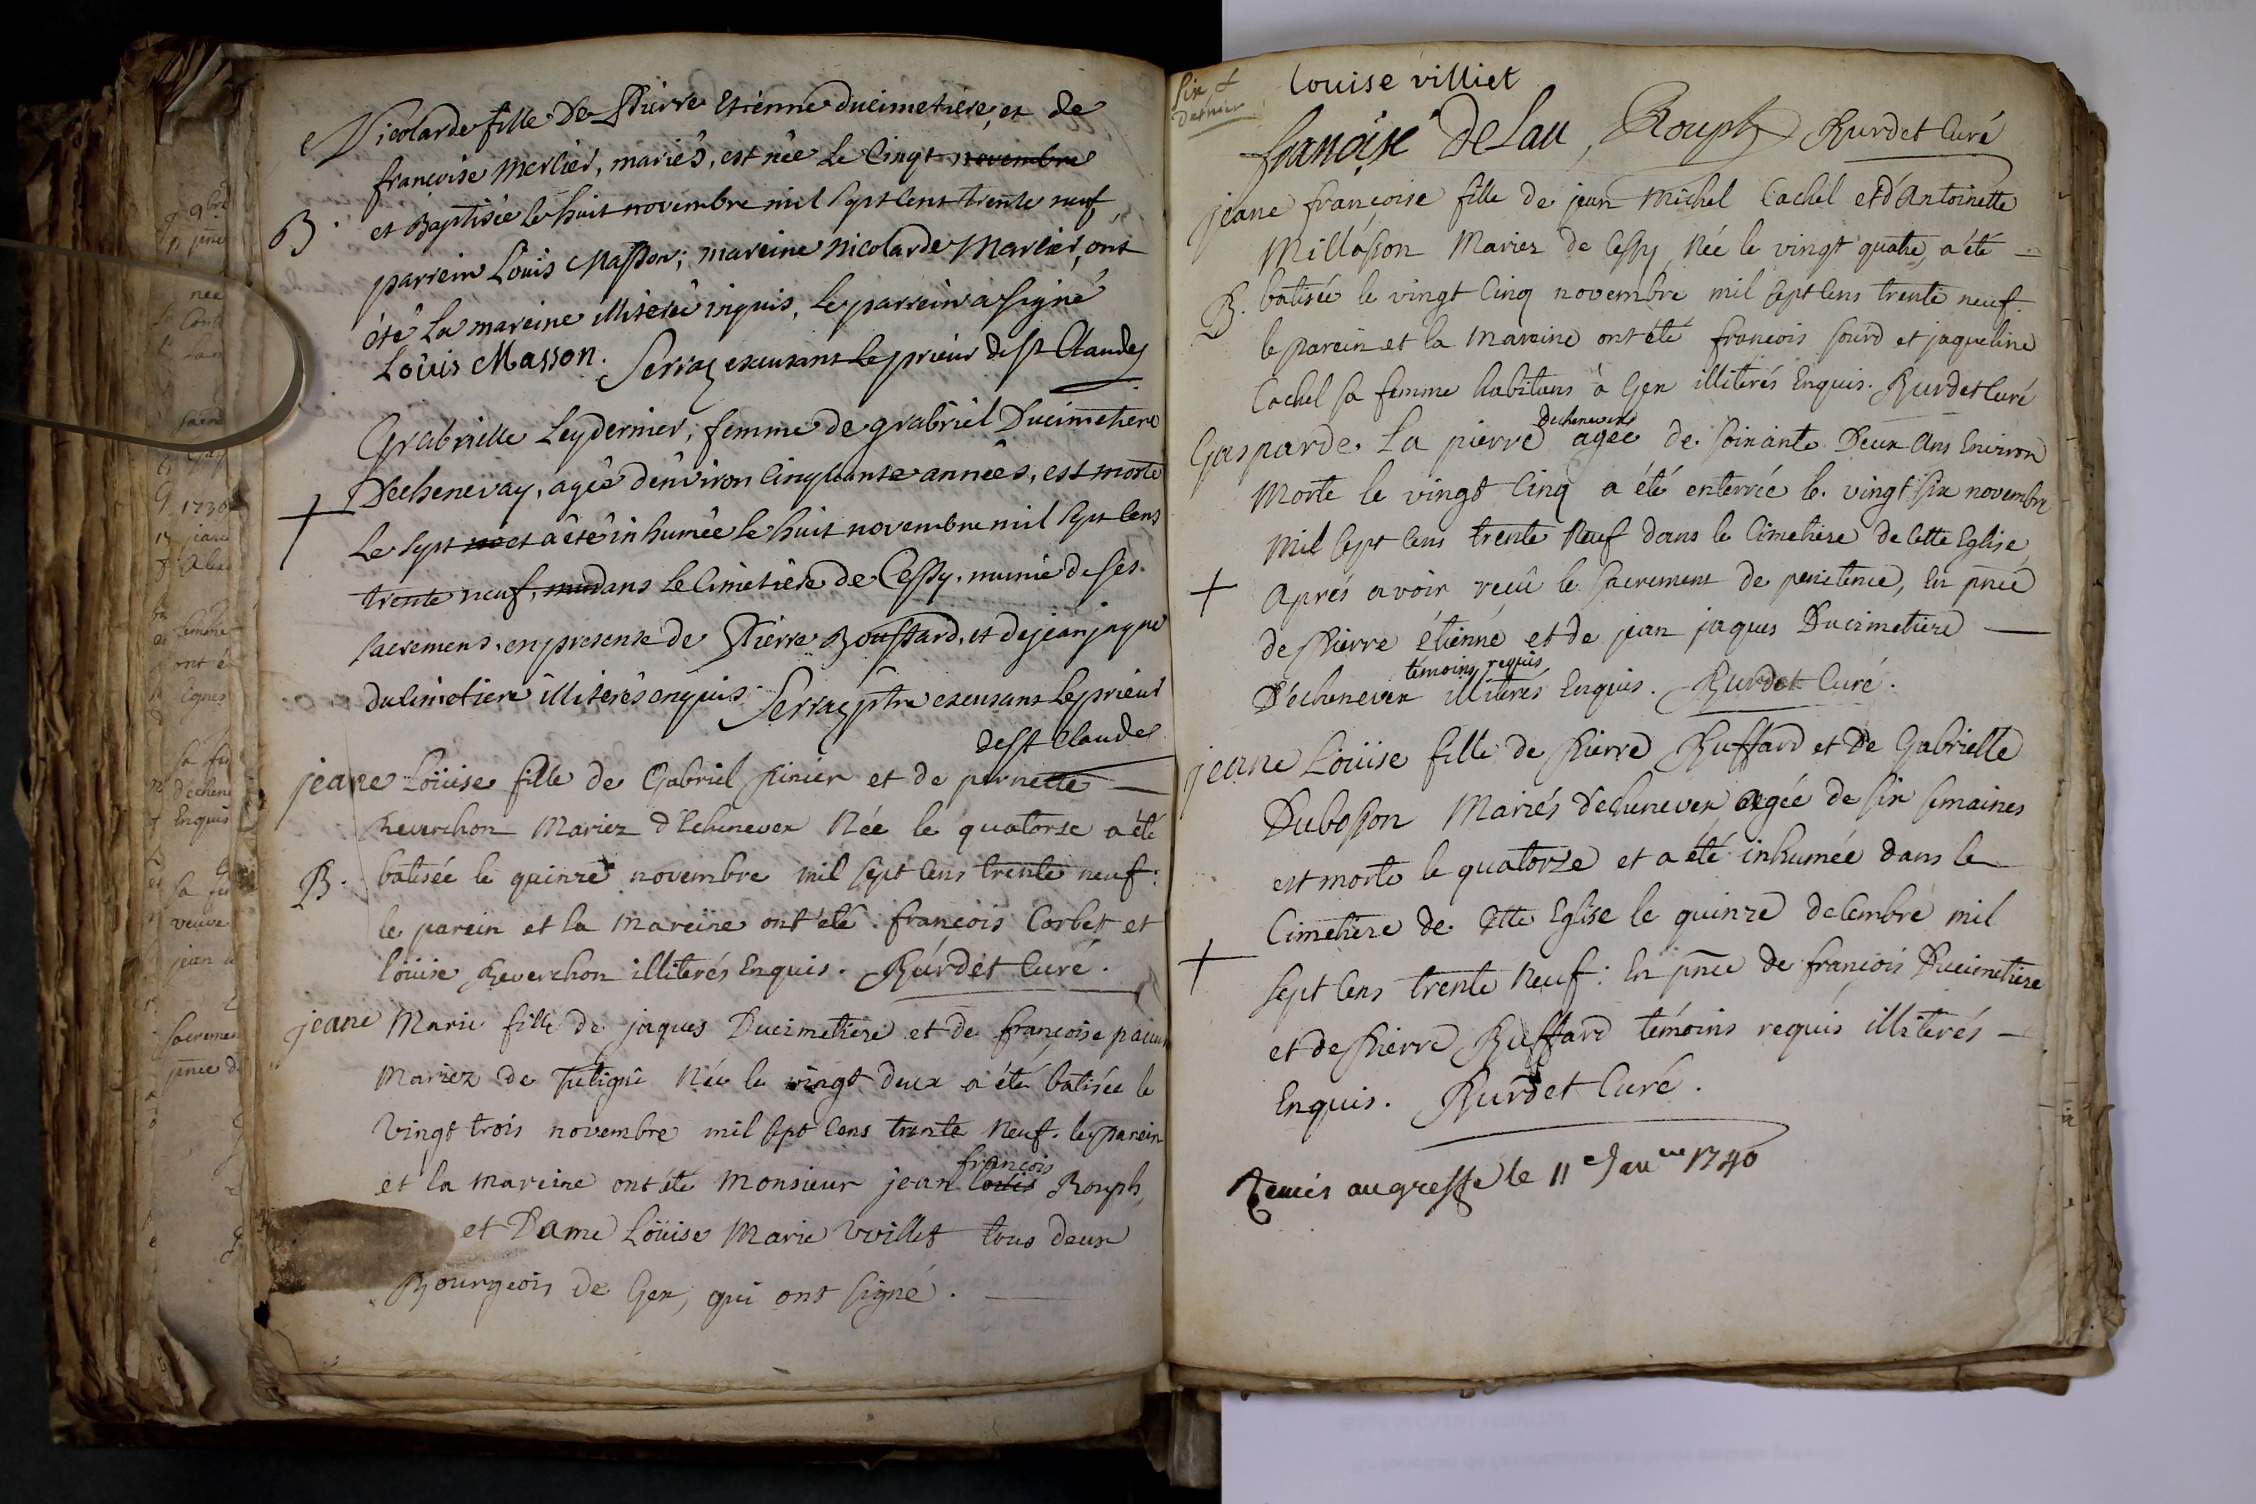 Nicolarde fille De Pierre Etienne ducimetiere, et de
françoise Merlier, mariés, est née Le Cinqt novembre
B. et Baptisée le huit novembre mil sept Cent trente neuf,
parrein Louis Masson; mareine Nicolarde Marlier, ont
été La mareine illiterée inquis, Le parrein a signé
Loüis Masson. Serraz excusant Le prieur de st Claudes
Grabrielle Leydernier, femme de grabriel Ducimetiere
Dechenevay, agée d'environ Cinquante années, est morte
+ Le sept no et a été inhumée le huit novembre mil sept Cens
trente neuf, dans Le Cimetiere de Cessy, munie de ses
sacremens, en presense de Pierre Bouffard, et de jean jaque
du Cimetiere illiterés enquis. Serraz ptre excusant Le prieur
de st Claudes
jeane Loüise fille de Gabriel Pinier et de pernette
Reverchon Mariez d'Echenevex Née le quatorse a été
B. batisée le quinze novembre mil sept Cens trente neuf:
le parein et la Mareine ont été françois Corbet et
loüise Reverchon illiterés Enquis. Burdet Curé.
jeane Marie fille de jaques Ducimetiere et de françoise
Mariez de Tutignî Née le vingt deux a été batisée le
vingt trois novembre mil sept Cens trente Neuf. le parein
françois
et la mareine ont été Monsieur jean louis Rouph,
et Dame Loüise Marie Vvillet tous deux
Bourgeois de Gex, qui ont signé.
Six &
Dernier
louise villiet
franoise De Lau, Rouph Burdet Curé
jeane françoise fille de jean Michel Cachel et d'Antoinette
Millasson Mariez de Cessy Née le vingt quatre, a été
B. batisée le vingt Cinq novembre mil sept Cens trente neuf.
le parein et la Mareine ont été francois sourd et jaqueline
Cachel sa femme habitans à Gex illiterés Enquis. Burdet Curé
dechenevex
Gasparde La pierre agée de soixante Deux Ans Environ
Morte le vingt Cinq a été enterrée le vingt six novembre
mil sept Cens trente Neuf dans le Cimetiere de Cette Eglise
+ Aprés avoir reçû le sacrement de penitence, En pnce
de Pierre étienne et de jean jaques Ducimetiere
témoins requis
D'echenevex illiterés Enquis. Burdet Curé.
jeane Loüise fille de Pierre Buffard et De Gabrielle
Dubosson Mariés d'echenevex agée de six semaines
est morte le quatorze et a été inhumée dans le
Cimetiere de Cette Eglise le quinze decembre mil
+ sept Cens trente Neuf: En pnce de françois Ducimetiere
et de Pierre Buffard témoins requis illiterés
Enquis. Burdet Curé.
Remis au greffe le 11e Janvier 1740